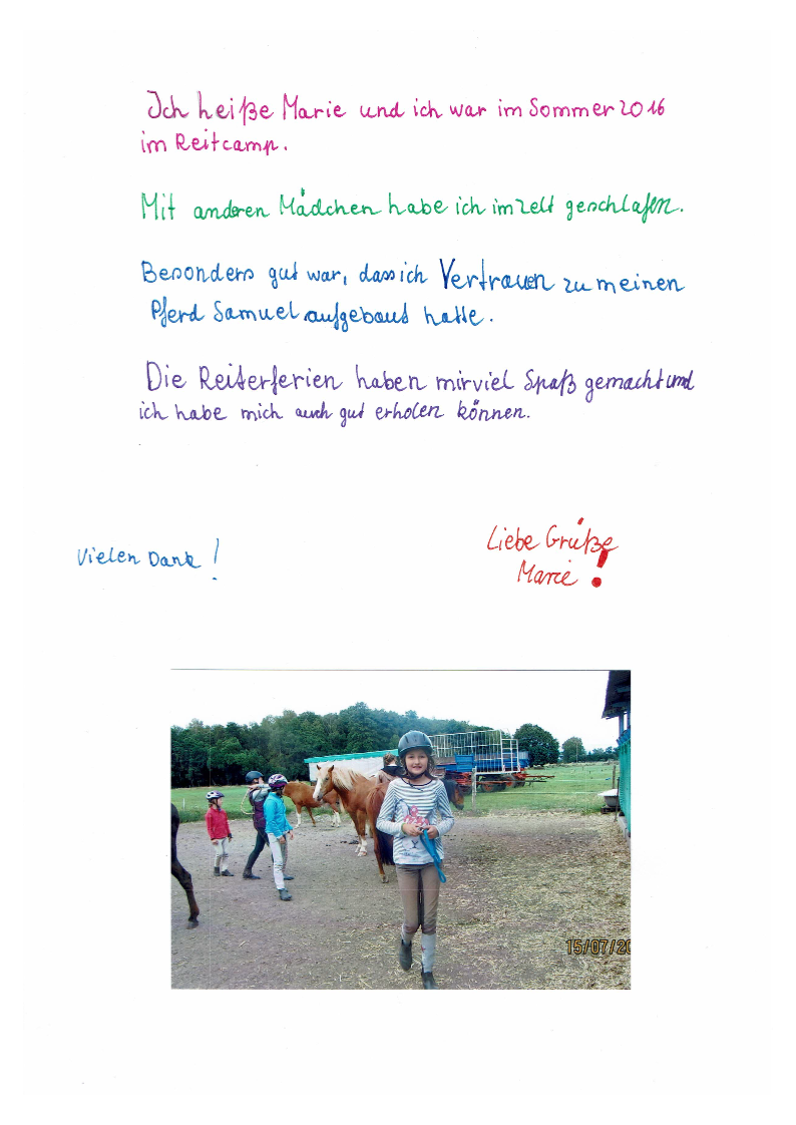 Ich heiße Marie und ich war im Sommer 2016
im Reitcamp.
Mit anderen Mädchen habe ich im Zelt geschlafen.
Besonders gut war, dass ich Vertrauen zu meinen
Pferd Samuel aufgebaut hatte.
Die Reiterferien haben mir viel Spaß gemacht und
ich habe mich auch gut erholen können.
Vielen Dank!
Liebe Grüße
Marie!
15/07/20